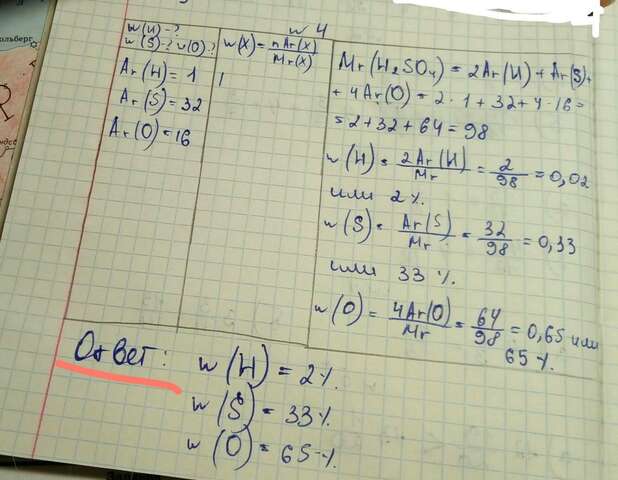 w 4
w(H)-?
w(S)-? w(O)?
Ar(H)=1
Ar(S)=32
Ar(O)=16
w(X)=nAr(X)/Mr(X)
Mr(H₂SO₄)=2Ar(H)+Ar(S)+
+4Ar(O)=2·1+32+4·16=
=2+32+64=98
w(H)=2Ar(H)/Mr=2/98=0,02
или 2%.
w(S)=Ar(S)/Mr=32/98=0,33
или 33%.
w(O)=4Ar(O)/Mr=64/98=0,65 или
65%.
Ответ: w(H)=2%.
w(S)=33%.
w(O)=65%.